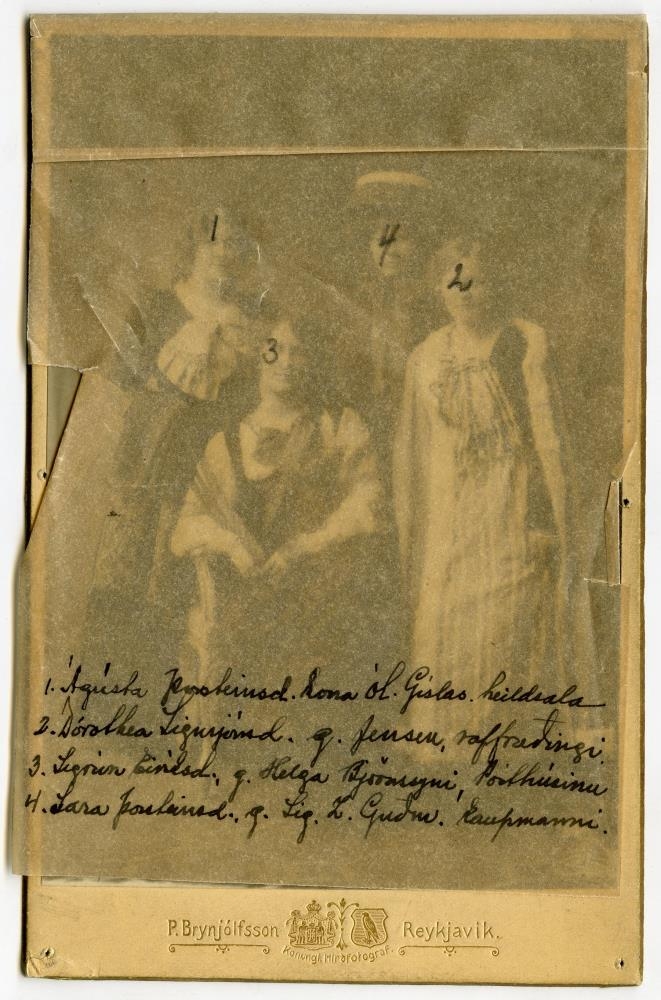 1
4
2
3
1. Ágústa Þorsteinsd. Kona Ól. Gíslas. heildsala
2. Dórothea Sigurjónsd. g. Jensen, raffræðingi.
3. Sigrún Eiríksd., g. Helga Björnssyni, Pósthúsinu
4. Lára Þorsteinsd., g. Sig. Z. Guðm. Kaupmanni.
P. Brynjólfsson Reykjavik.
Konungl. Hirðfotograf.